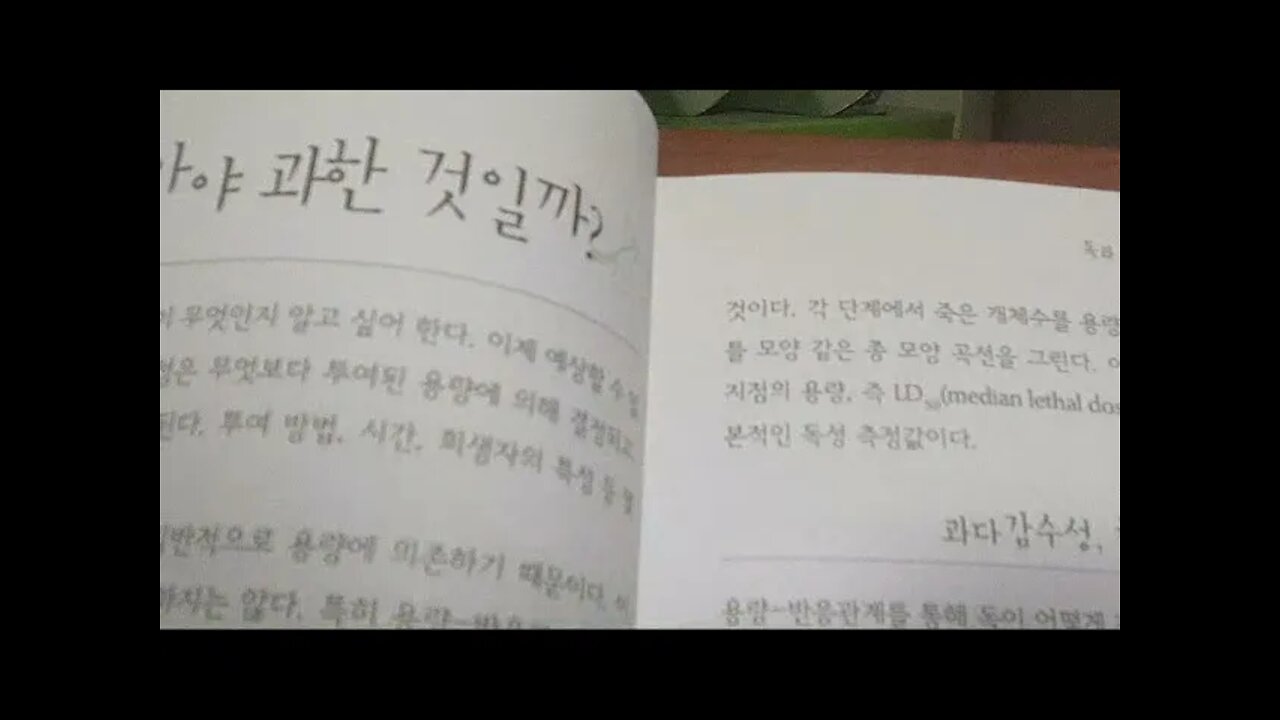 과한 것일까?
무엇인지 알고 싶어 한다. 이제 예상할 수
무엇보다 투여된 용량에 의해 결정되고
투여 방법, 시간, 희생자의 특성 등
용량에 의존하기 때문이다.
않다. 특히 용량-반응
것이다. 각 단계에서 죽은 개체수를 용량
틀 모양 같은 종 모양 곡선을 그린다.
지점의 용량, 즉 LD50(median lethal dos
본적인 독성 측정값이다.
과다감수성,
용량-반응관계를 통해 독이 어떻게